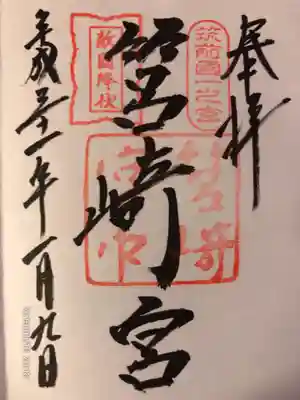 奉拝
筑前國一之宮
敵国降伏
筥崎宮
筥崎宮印
平成三十一年一月九日